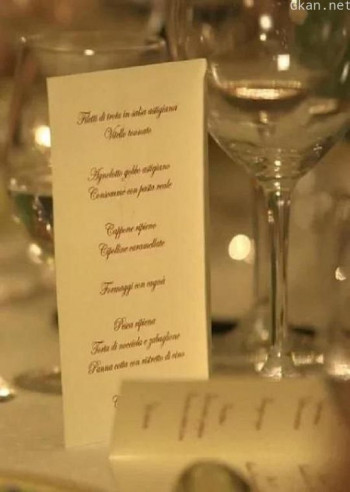 Gkan.net
Filetti di trota in salsa astigiana
Vitello tonnato
Agnolotto gobbo astigiano
Consomme con pasta reale
Cappone ripieno
Cipolline caramellate
Formaggi con cugnà
Pesca ripiena
Torta di nocciole e zabaglione
Panna cotta con ristretto di vino